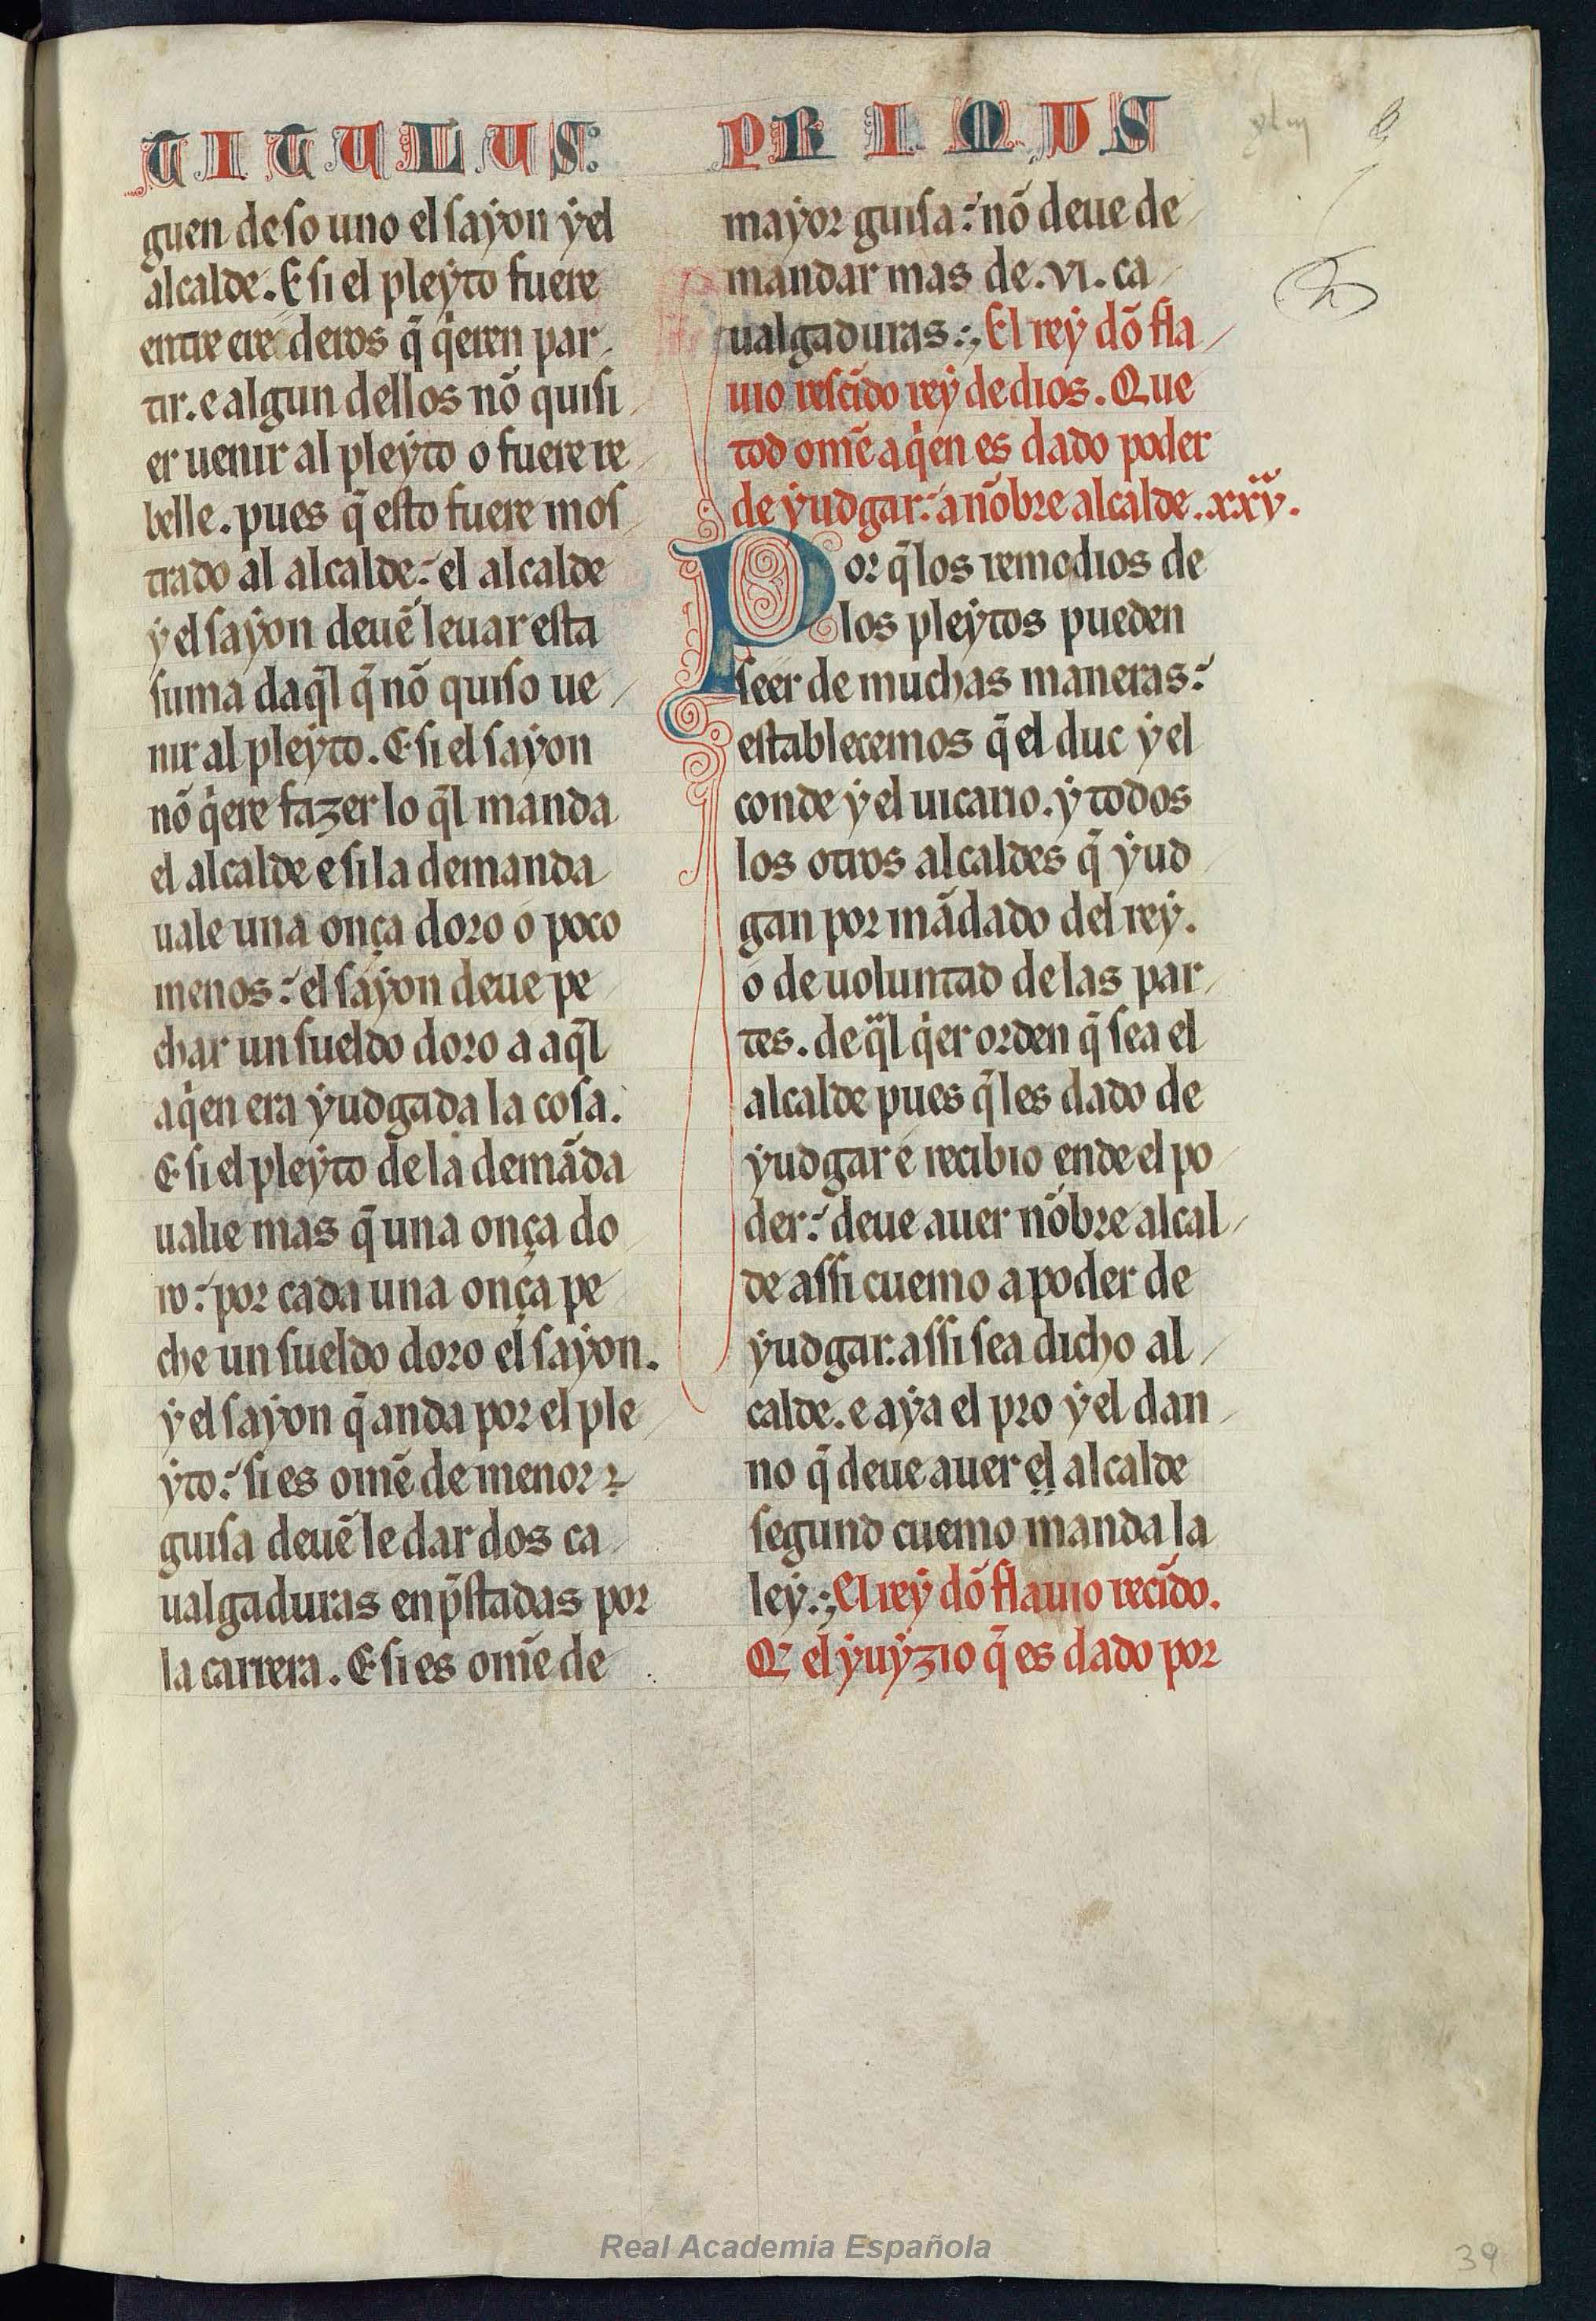 TITULUS
PRIMUS
guen de so uno el sayon ẏel
alcalde. E si el pleẏto fuere
entre ere deros q̃ q̇eren par
tir. e algun dellos nõ quisi
er uenir al pleẏto o fuere re
belle. pues q̃ esto fuere mos
trado al alcalde: el alcalde
ẏ el saẏon deuẽ leuar esta
suma daq̃l q̃ nõ quiso ue
nir al pleẏto. E si el saẏon
nõ q̇ere fazer lo q̃l manda
el alcalde e si la demanda
uale una onça doro o poco
menos: el saẏon deue pe
char un sueldo doro a aq̃l
aq̇en era ẏudgada la cosa.
E si el pleẏto de la demãda
ualie mas q̃ una onça do
ro: por cada una onça pe
che un sueldo doro el saẏon.
ẏ el saẏon q̃ anda por el ple
ẏto: si es omẽ de menor
guisa deuẽ le dar dos ca
ualgaduras enp̃stadas por
la carrera. E si es omẽ de
mayor guisa: nõ deue de
mandar mas de .vi. ca
ualgaduras:; El reẏ dõ fla
uio rescĩdo reẏ de dios. Que
tod omẽ aq̇en es dado poder
de ẏudgar: a nõbre alcalde. xxv.
Por q̃ los remedios de
los pleẏtos pueden
seer de muchas maneras:
establecemos q̃ el duc ẏ el
conde ẏ el uicario. ẏ todos
los otros alcaldes q̃ ẏud
gan por mãdado del reẏ.
o de uoluntad de las par
tes. de q̃l q̇er orden q̃ sea el
alcalde pues q̃ les dado de
ẏudgar e recibio ende el po
der: deue auer nõbre alcal
de assi cuemo a poder de
ẏudgar. assi sea dicho al
calde. e aẏa el pro ẏ el dan
no q̃ deue auer el alcalde
segund cuemo manda la
leẏ:; El reẏ dõ flauio recĩdo.
Q̃ el ẏuẏzio q̃ es dado por
39
Real Academia Española